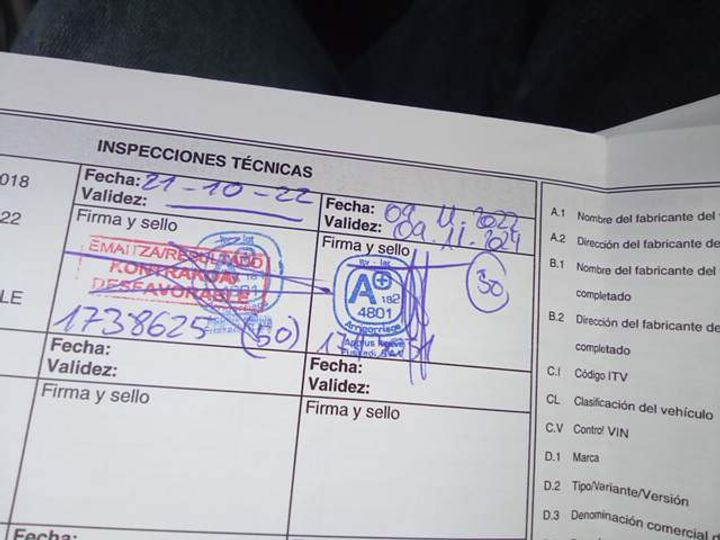 INSPECCIONES TÉCNICAS
018
22
LE
Fecha: 21-10-22
Validez:
Firma y sello
EMAITZA/RESULTADO
KONTRAKOA/
DESFAVORABLE
1738625 (50)
Fecha: 09.11.2022
Validez: 09.11.2024
Firma y sello
itv - iat
A+
182
4801
Arrigorriaga
50
Fecha:
Validez:
Firma y sello
Fecha:
Validez:
Firma y sello
Fecha:
A.1 Nombre del fabricante del
A.2 Dirección del fabricante de
B.1 Nombre del fabricante del
completado
B.2 Dirección del fabricante de
completado
C.I Código ITV
CL Clasificación del vehículo
C.V Control VIN
D.1 Marca
D.2 Tipo/Variante/Versión
D.3 Denominación comercial d